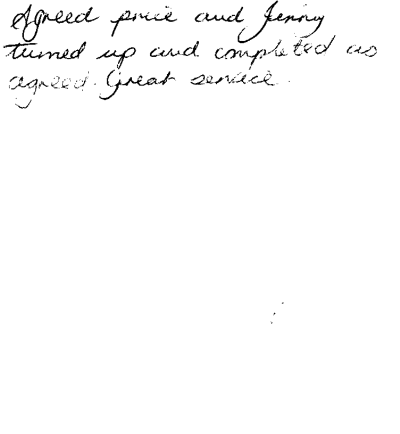 Agreed price and Jenny
turned up and completed as
agreed. Great service.